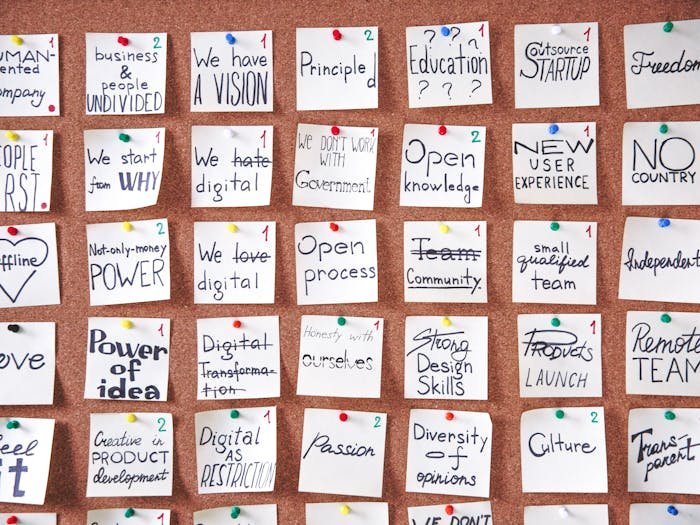 UMAN-
ented
ompany
business
&
people
UNDIVIDED
2
We have
A VISION
1
Principled
2
? ? ?
Education
? ? ?
1
Outsource
STARTUP
1
Freedom
EOPLE
IRST.
We start
from WHY
1
We hate
digital
1
WE DON'T WORK
WITH
Government
1
Open
knowledge
2
NEW
USER
EXPERIENCE
1
NO
COUNTRY
ffline
Not-only-money
POWER
2
We love
digital
1
Open
process
1
Team
Community.
1
small
qualified
team
1
Independent
ove
Power
of
idea
1
Digital
Transforma-
tion
1
Honesty with
ourselves
1
Strong
Design
Skills
Products
LAUNCH
1
Remote
TEAM
eel
it
Creative in
PRODUCT
development
2
Digital
AS
RESTRICTION
1
Passion
2
Diversity
of
opinions
Culture
2
Trans
parent
WE DON'T